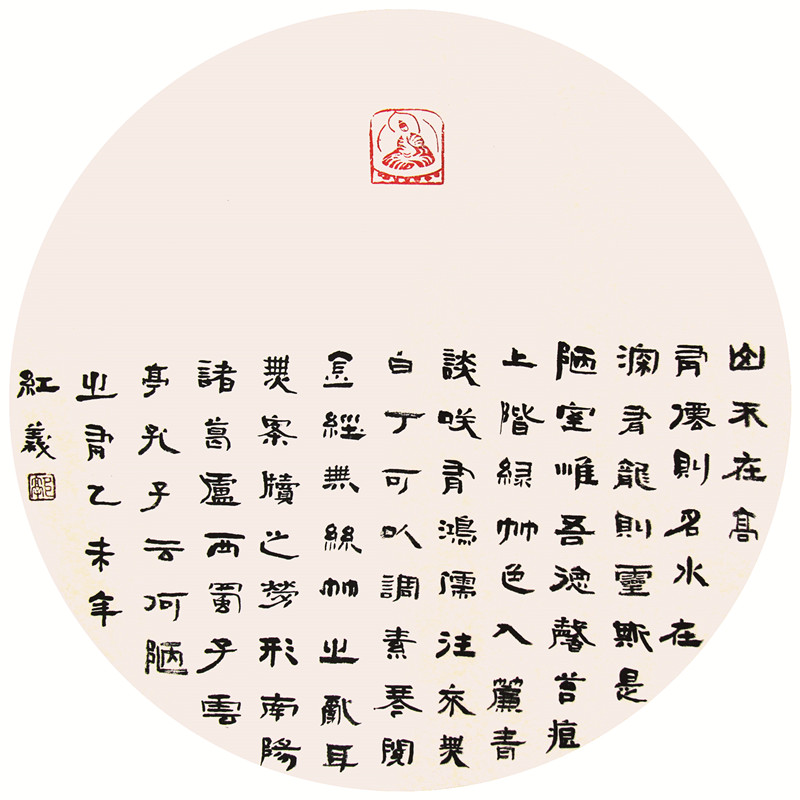 山不在高
有僊則名水在
深有龍則靈斯是
陋室惟吾德馨苔痕
上階緑艸色入簾青
談咲有鴻儒往來無
白丁可以調素琴閱
金經無絲竹之亂耳
無案牘之勞形南陽
諸葛廬西蜀子雲
亭孔子云何陋
之有乙未年
紅義